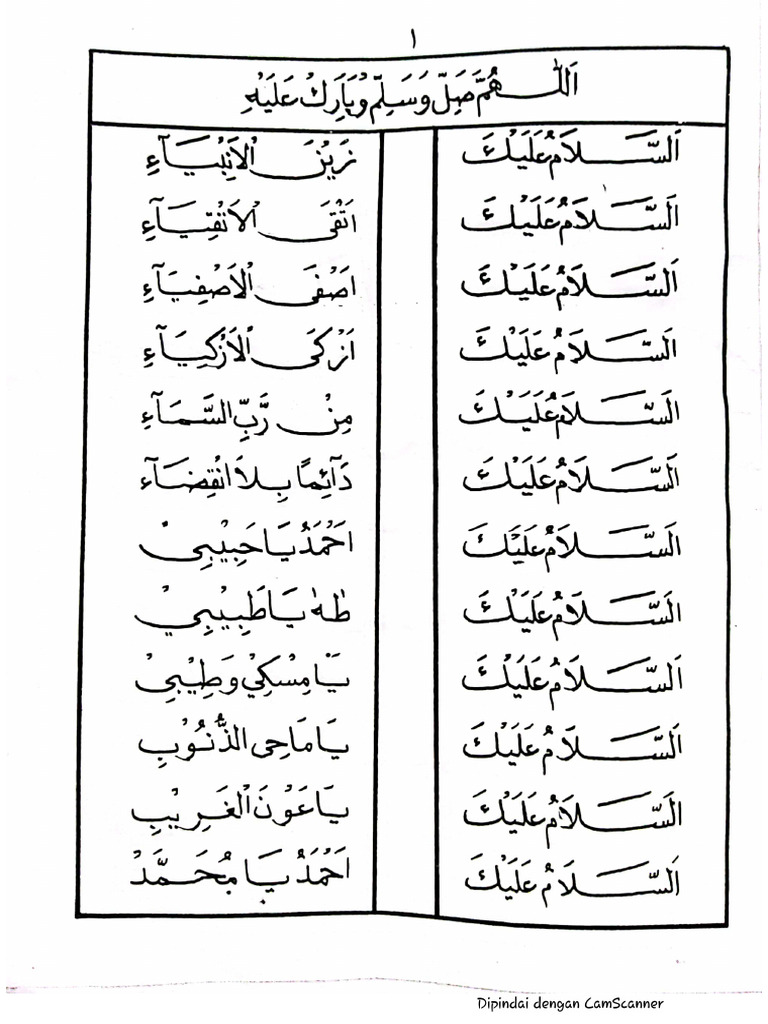 ١
اَللّٰهُمَّ صَلِّ وَسَلِّمْ وَبَارِكْ عَلَيْهِ
اَلسَّلَامُ عَلَيْكَ زَيْنَ الْاَنْبِيَآءِ
اَلسَّلَامُ عَلَيْكَ اَتْقَى الْاَتْقِيَآءِ
اَلسَّلَامُ عَلَيْكَ اَصْفَى الْاَصْفِيَآءِ
اَلسَّلَامُ عَلَيْكَ اَزْكَى الْاَزْكِيَآءِ
اَلسَّلَامُ عَلَيْكَ مِنْ رَّبِّ السَّمَآءِ
اَلسَّلَامُ عَلَيْكَ دَآئِمًا بِلاَ انْقِضَآء
اَلسَّلَامُ عَلَيْكَ اَحْمَدُ يَا حَبِيْبِيْ
اَلسَّلَامُ عَلَيْكَ طٰهٰ يَا طَبِيْبِيْ
اَلسَّلَامُ عَلَيْكَ يَا مِسْكِيْ وَطِيْبِيْ
اَلسَّلَامُ عَلَيْكَ يَا مَاحِى الذُّنُوْبِ
اَلسَّلَامُ عَلَيْكَ يَا عَوْنَ الْغَرِيْبِ
اَلسَّلَامُ عَلَيْكَ اَحْمَدُ يَا مُحَمَّدْ
Dipindai dengan CamScanner